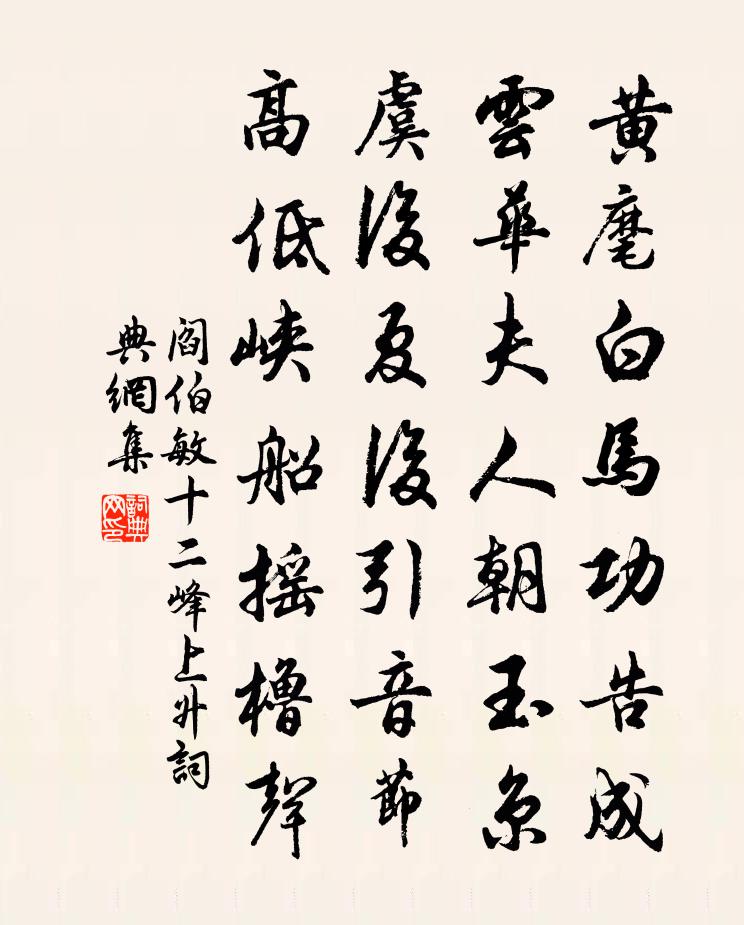 黄麾白馬功告成
雲華夫人朝玉京
虞後夏後引音節
高低峽船摇櫓聲
閻伯敏十二峰上升詞
典網集
詞典网印